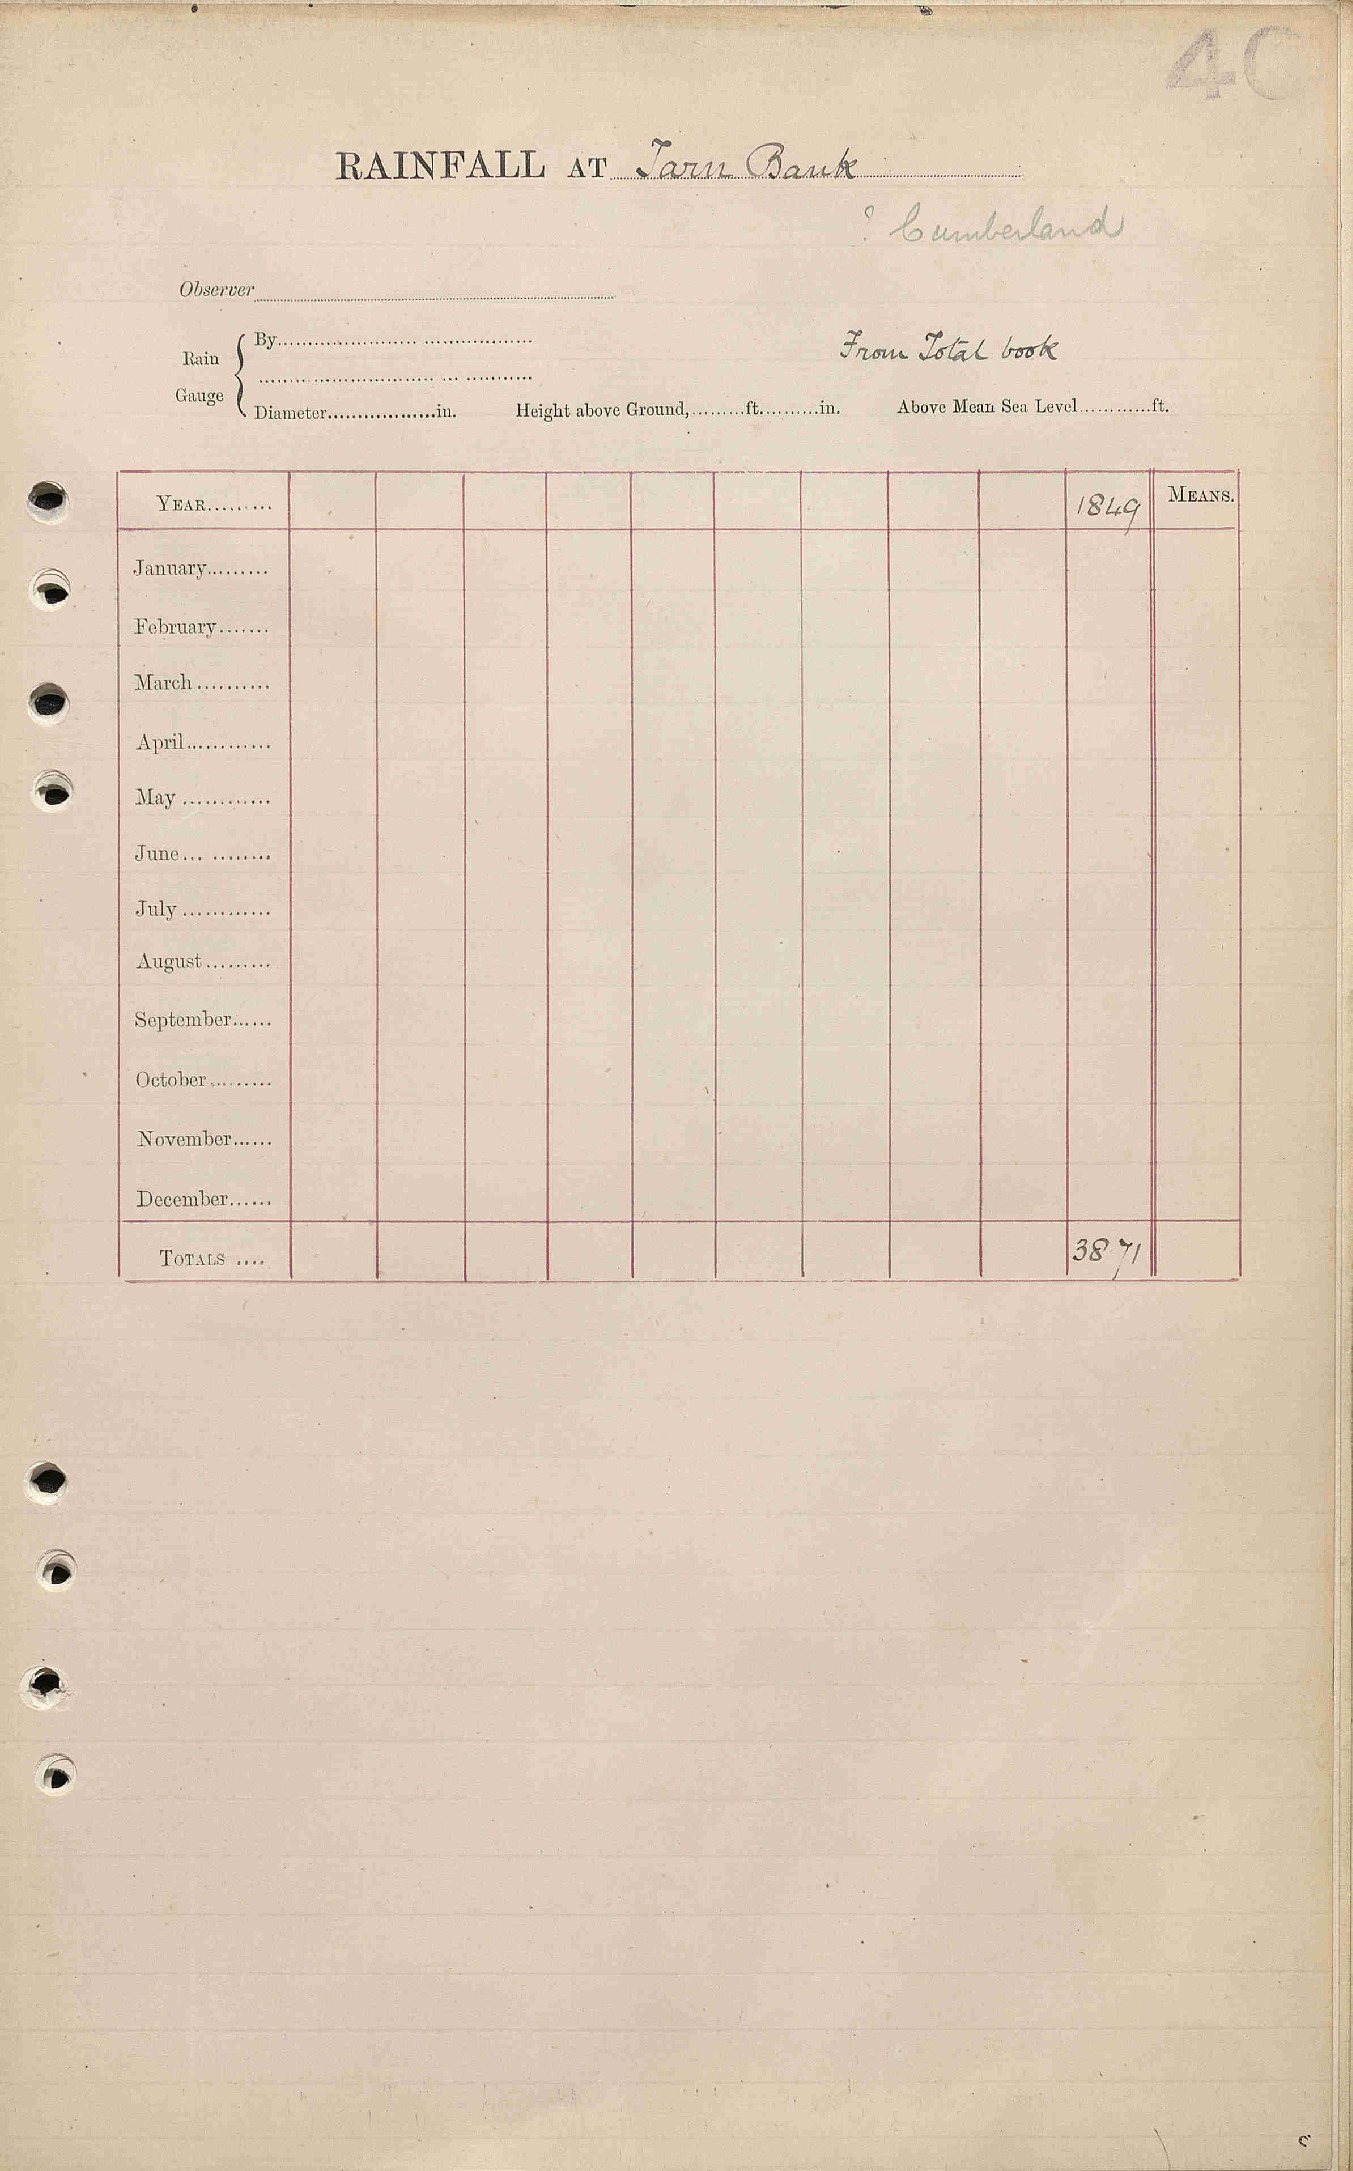 40
RAINFALL AT Tarn Bank
? Cumberland
Observer
Rain Gauge { By
From Total book
Diameter in. Height above Ground, ft. in. Above Mean Sea Level ft.
YEAR 1849 MEANS.
January
February
March
April
May
June
July
August
September
October
November
December
TOTALS 38.71